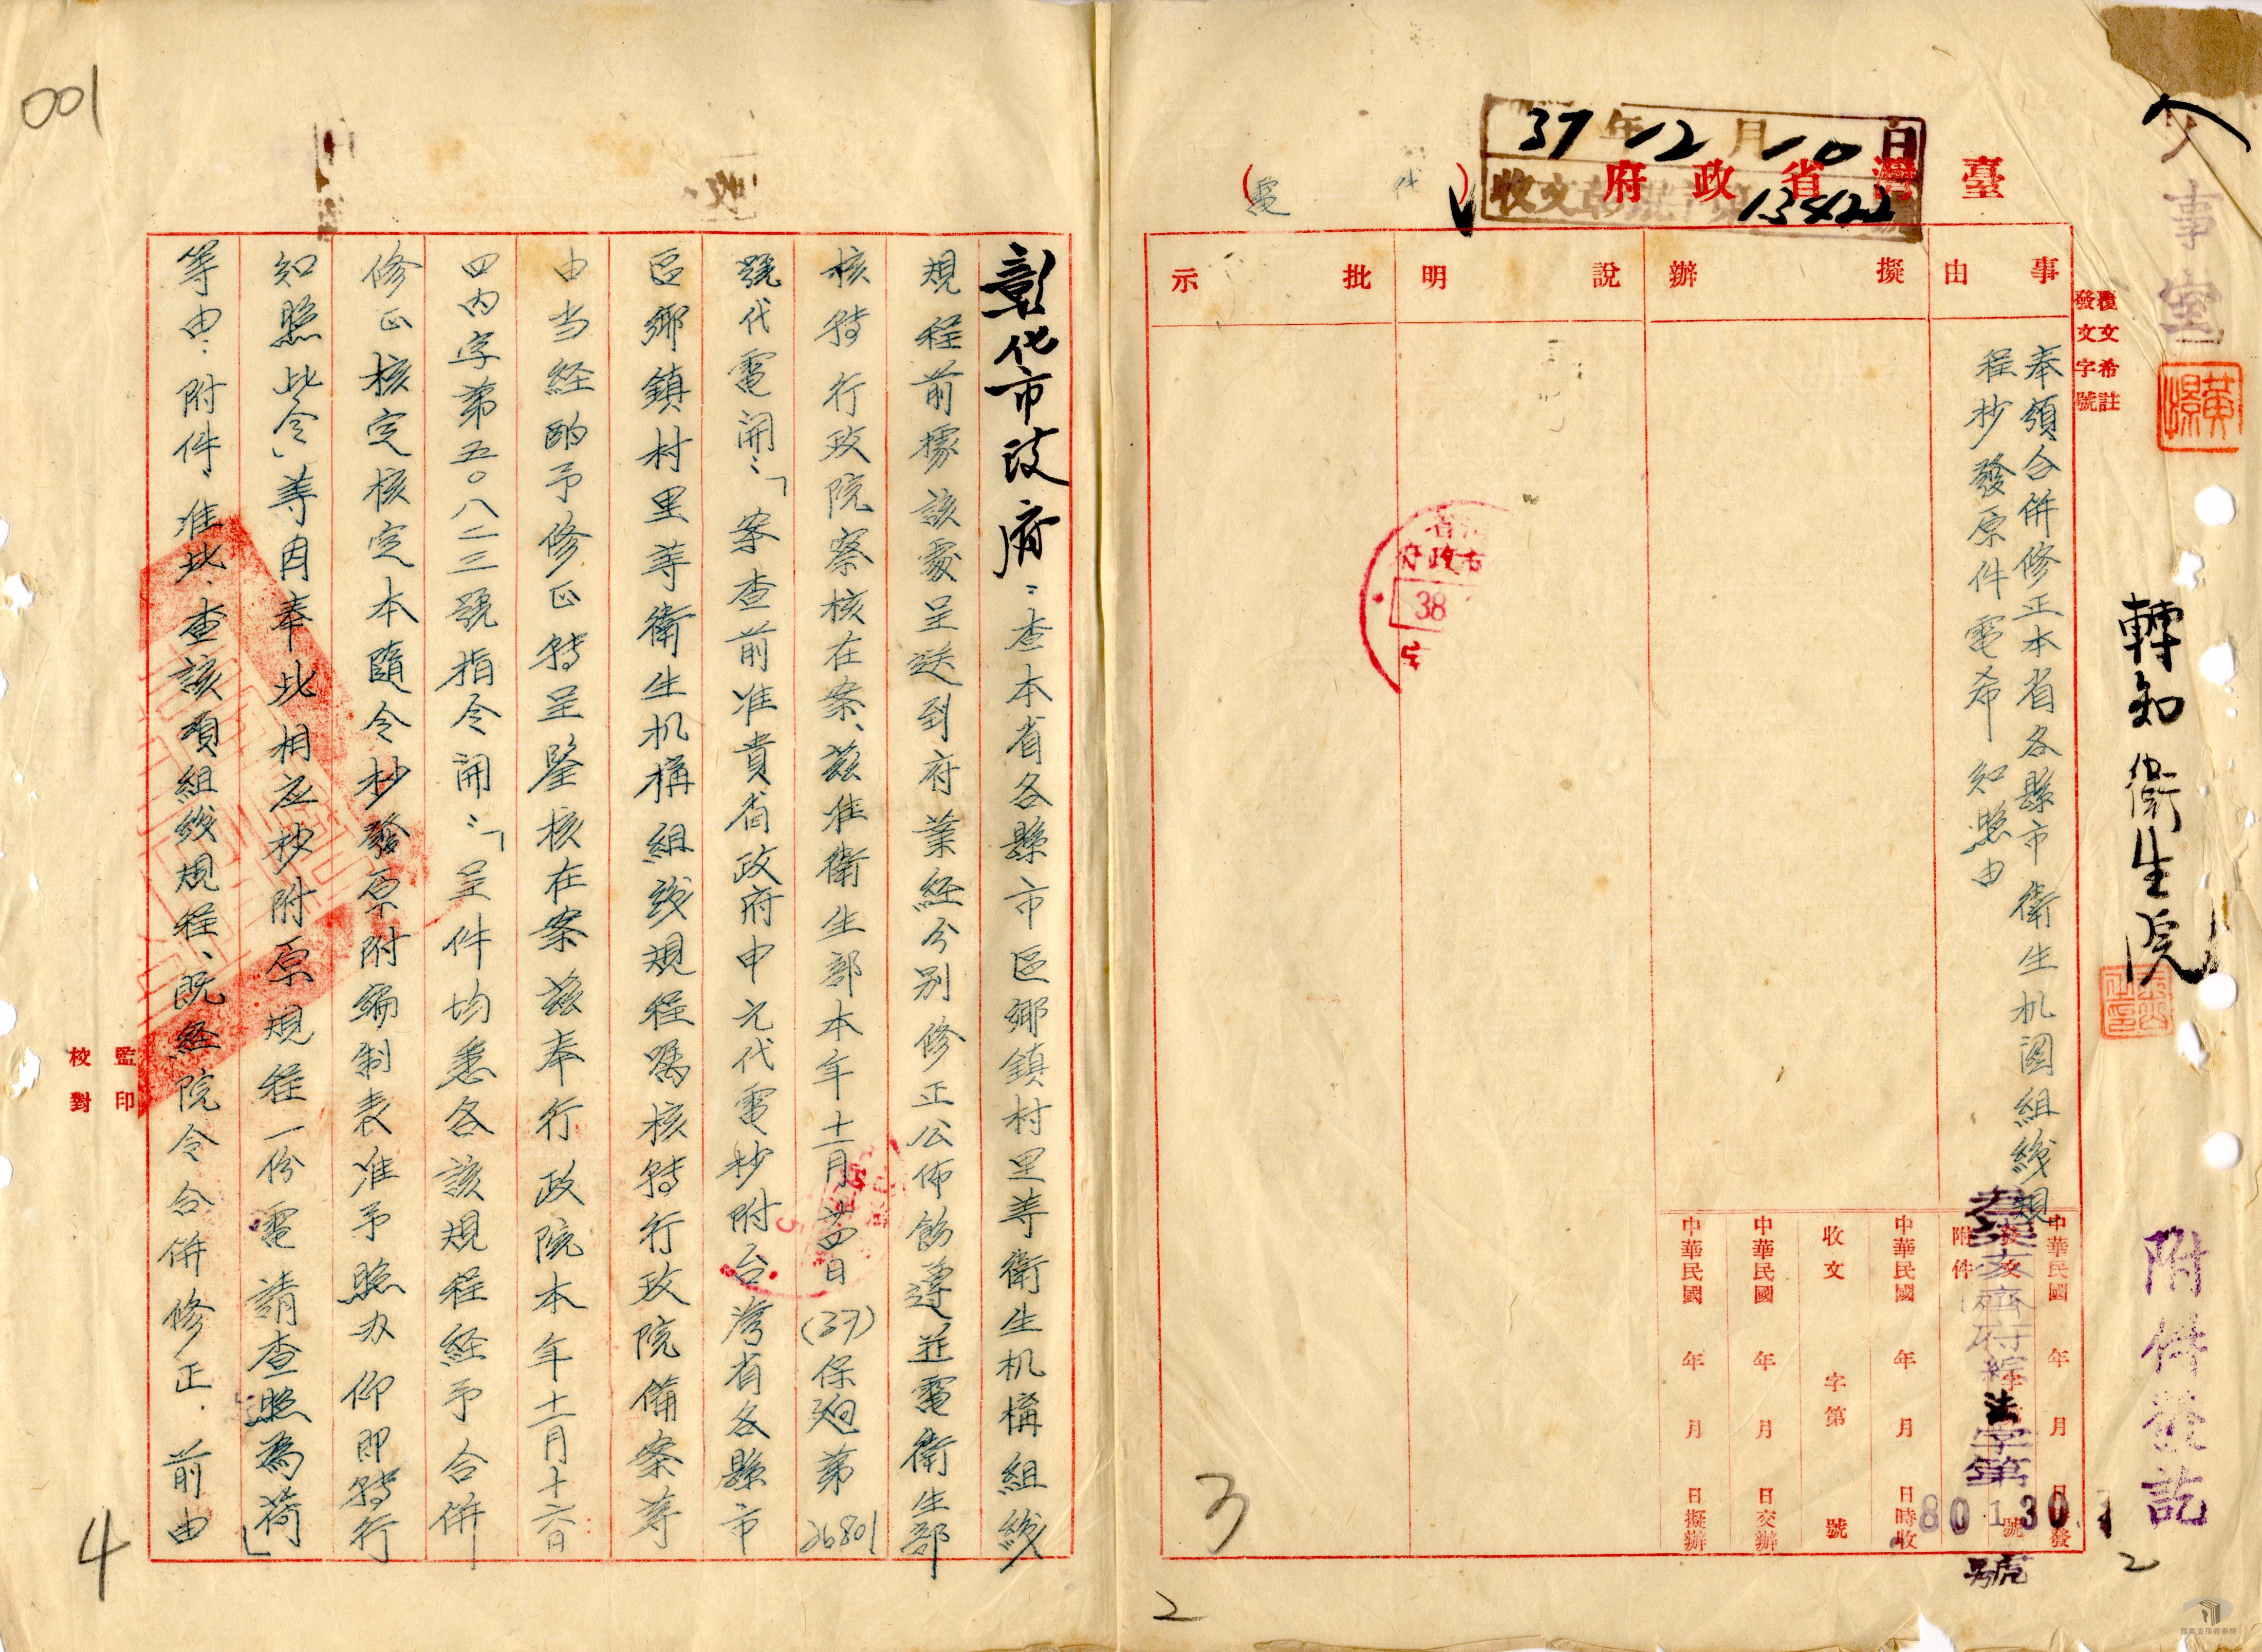 人事室
轉知衛生院
附件發訖
2
臺灣省政府
(代電)
37年12月10日
收文
13422
覆文希註
發文字號
事由
奉頒合併修正本省各縣市衛生机関組織規
程抄發原件電希知照由
擬辦
說明
批示
中華民國 年 月 日發
附件
府綜法字第
80130
號
中華民國 年 月 日時收
收文 字第 號
中華民國 年 月 日交辦
中華民國 年 月 日擬辦
38
3
2
彰化市政府：查本省各縣市區鄉鎮村里等衛生机構組織
規程前據該處呈送到府業經分別修正公佈飭遵並電衛生部
核轉行政院察核在案、茲准衛生部本年十一月廿四日(37)保廻第26801
號代電開：「案查前准貴省政府申元代電抄附台灣省各縣市
區鄉鎮村里等衛生机構組織規程囑核轉行政院備案等
由当経酌予修正轉呈鑒核在案茲奉行政院本年十一月十六日
四內字第五〇八二三號指令開：「呈件均悉各該規程経予合併
修正核定核定本隨令抄發原附編制表准予照办仰即轉行
知照此令」等因奉此相应抄附原規程一份電請查照為荷」
等由：附件、准此、查該項組織規程、既経院令合併修正．前由
監印
校對
001
4